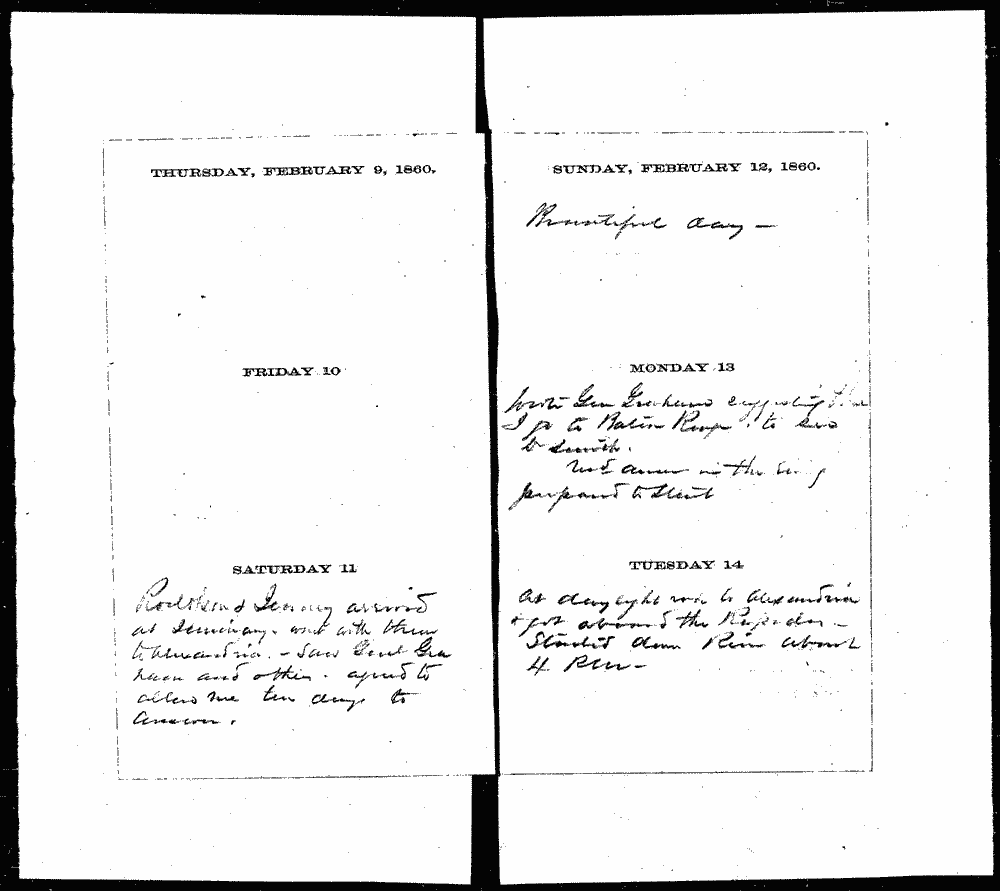 THURSDAY, FEBRUARY 9, 1860.
FRIDAY 10
SATURDAY 11
arrived
at Seminary. went with them
to Alexandria. - Saw Genl Gra
ham and others. agreed to
allow me ten days to
answer.
SUNDAY, FEBRUARY 12, 1860.
Beautiful day -
MONDAY 13
Wrote Gen Graham suggesting that
I go to Baton Rouge. to see
in the
prepared to start
TUESDAY 14
At daylight rode to Alexandria
& got aboard the Rapides -
Started down River about
4 PM -